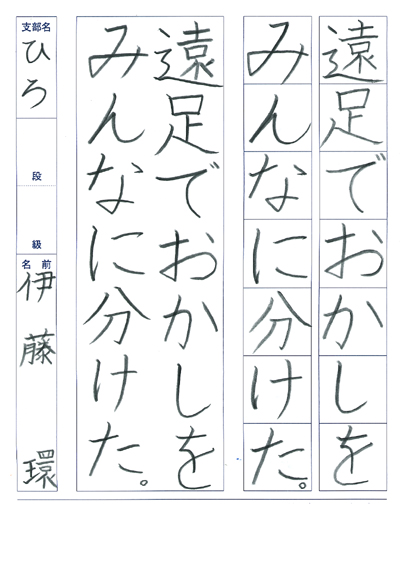 遠足でおかしを
みんなに分けた。
遠足でおかしを
みんなに分けた。
支部名
ひろ
段
級
名前
伊藤環